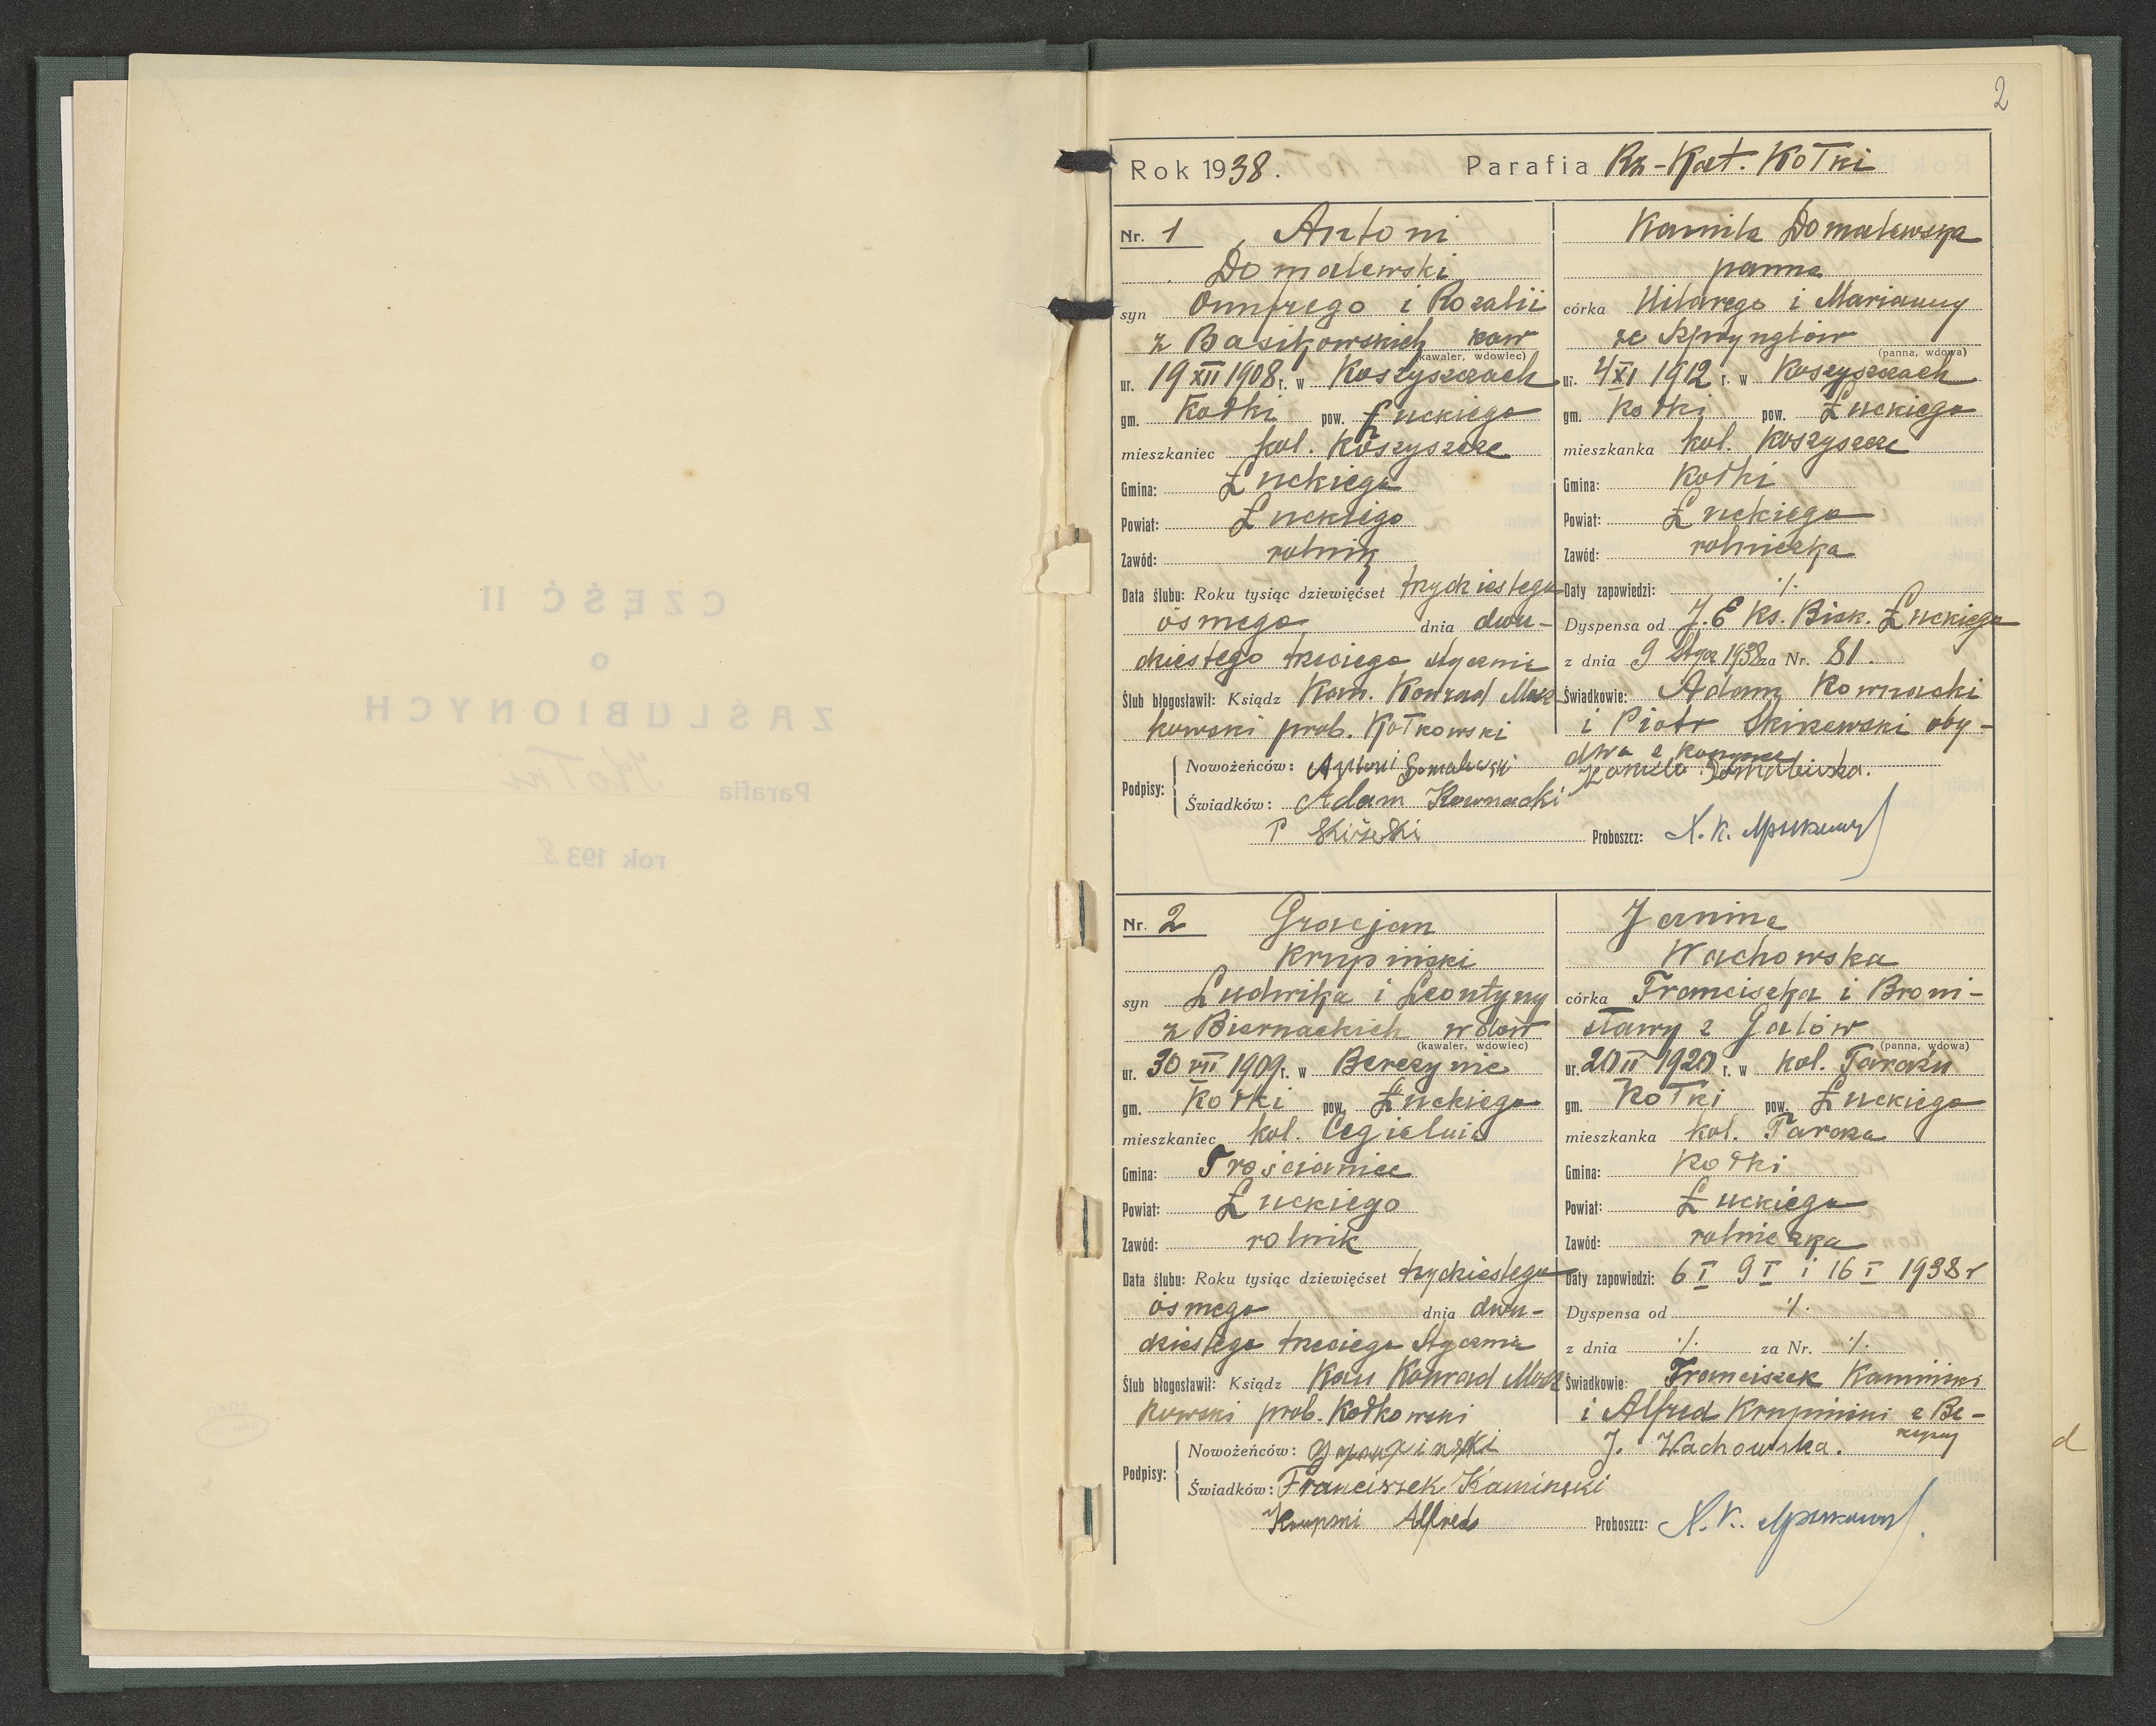 2
Rok 1938. Parafia Rz-Kat. Kołki
Nr. 1 Antoni
Domalewski
syn Onufrego i Rozalii
z Basikowskich kaw
(kawaler, wdowiec)
ur. 19 XII 1908 r. w Koszyszczach
gm. Kołki pow. Łuckiego
mieszkaniec kol. Koszyszcze
Gmina: Łuckiego
Powiat: Łuckiego
Zawód: rolnik
Data ślubu: Roku tysiąc dziewięćset trzydziestego
ósmego dnia dwu-
dziestego trzeciego stycznia
Ślub błogosławił: Ksiądz Kan. Konrad Mosz
kowski prob. Kołkowski
Kamila Domalewska
panna
córka Hilarego i Marianny
ze Szpryngłów
(panna, wdowa)
ur. 4 XI 1912 r. w Koszyszczach
gm. Kołki pow. Łuckiego
mieszkanka kol. Koszyszcze
Gmina: Kołki
Powiat: Łuckiego
Zawód: rolniczka
Daty zapowiedzi: ·/.
Dyspensa od J. E Ks. Bisk. Łuckiego
z dnia 9 Stycz 1938 za Nr. 81.
Świadkowie: Adam Kownacki
i Piotr Skirzewski oby-
dwa z
Podpisy: Nowożeńców: Antoni Domalewski Kamila Domalewska.
Świadków: Adam Kownacki
P Skiżeski Proboszcz: X. K.
Nr. 2 Gracjan
Krupiński
syn Ludwika i Leontyny
z Biernackich wdow
(kawaler, wdowiec)
ur. 30 VII 1909 r. w Berezynie
gm. Kołki pow. Łuckiego
mieszkaniec kol. Cegielnia
Gmina: Trościaniec
Powiat: Łuckiego
Zawód: rolnik
Data ślubu: Roku tysiąc dziewięćset trzydziestego
ósmego dnia dwu-
dziestego trzeciego Stycznia
Ślub błogosławił: Ksiądz Kan Konrad Mosz
kowski prob. Kołkowski
Janina
Wachowska
córka Franciszka i Broni-
sławy z Galów
(panna, wdowa)
ur. 20 II 1920 r. w kol. Tarażu
gm. Kołki pow. Łuckiego
mieszkanka kol. Taraża
Gmina: Kołki
Powiat: Łuckiego
Zawód: rolniczka
Daty zapowiedzi: 6 I 9 I i 16 I 1938 r
Dyspensa od ·/.
z dnia ·/. za Nr. ·/.
Świadkowie: Franciszek Kamiński
i Alfred Krupiński z Be-
rezyny
Podpisy: Nowożeńców: J. Wachowska.
Świadków: Franciszek Kaminski
Alfreds Proboszcz: X. K.
d
CZĘŚĆ II
O
ZAŚLUBIONYCH
Parafia Kołki
rok 1938